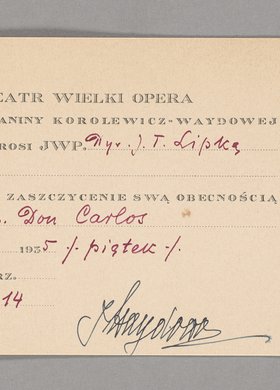 EATR WIELKI OPERA
ANINY KOROLEWICZ-WAYDOWEJ
ROSI JWP. Dyr. J. T. Lipką
ZASZCZYCENIE SWĄ OBECNOŚCIĄ
Don Carlos
1935 /-piątek-/.
RZ.
14
Waydowa